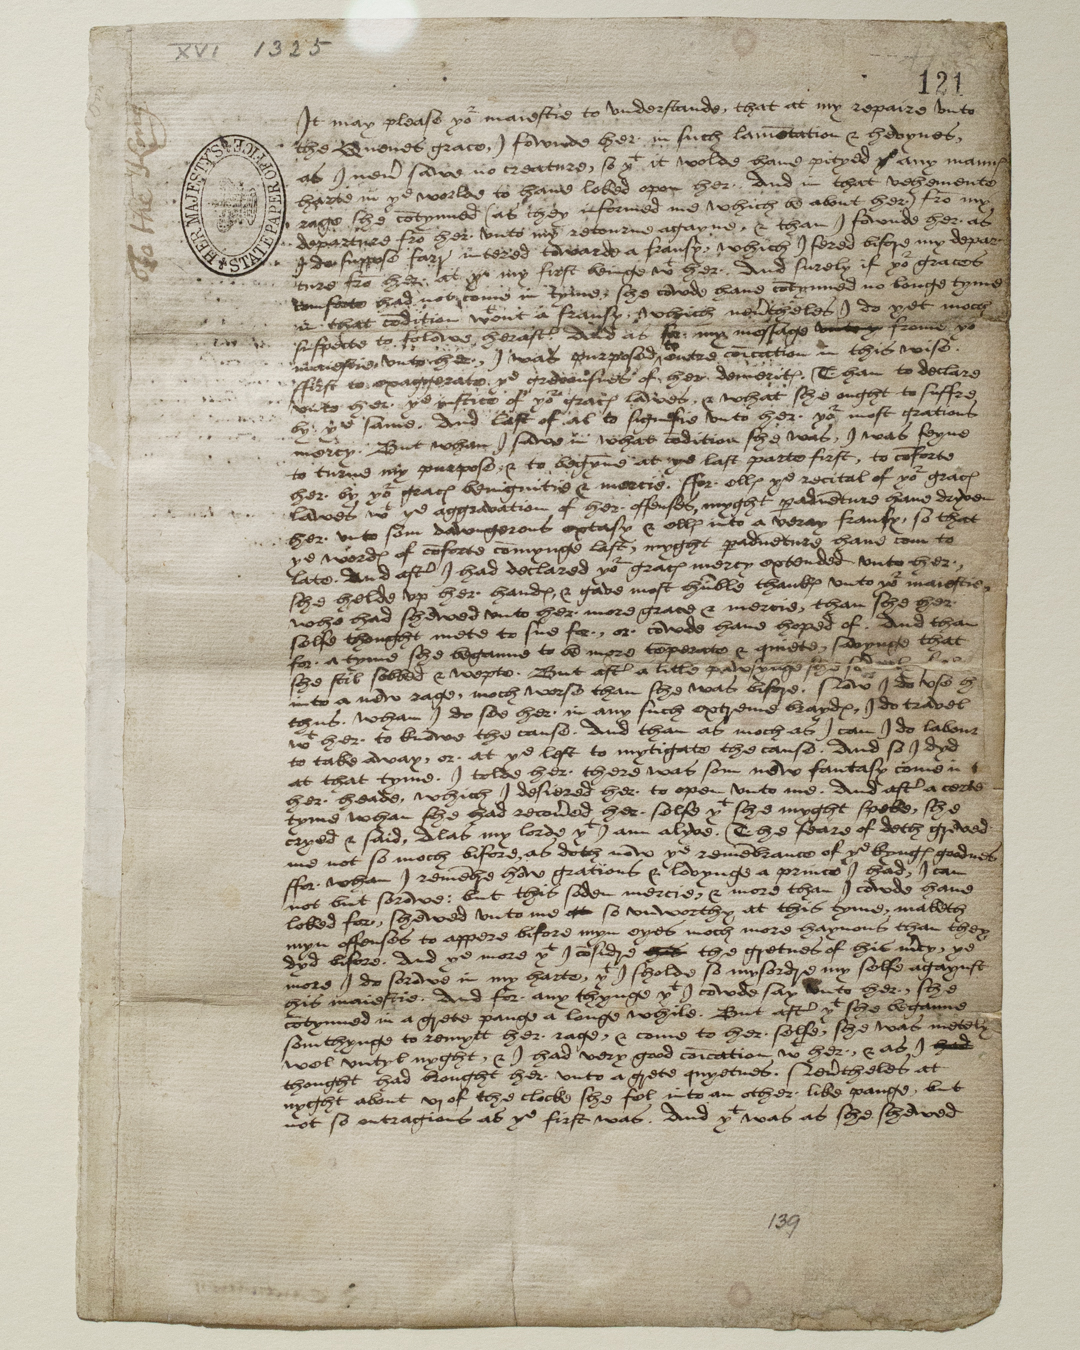 XVI 1325
121
To the King
HER MAJESTY'S STATE PAPER OFFICE
It may please yor maiestie to understande, that at my repaire unto
the Quenes grace, I fownde her in such lamētation & hevynes,
as I nevr sawe no creature, so yt it wolde have pityed any manns
harte in ye worlde to have loked upon her. And in that vehemente
rage she cōtynued (as they īformed me which be about her) frō my
departure frō her unto my retourne agayne, & than I fownde her as
I do suppose farr intered towarde a fransy, which I fered bifore my depar
ture frō her at my first beinge wt her. And surely if yor graces
comforte had not come in tyme, she cowde have cōtynued no longe tyme
in that cōdition wtout a fransy, which nevrtheles I do yet moch
suspecte to folowe herafter. And as for my message frome yor
maiestie unto her, I was purposed to entre cōication in this wise.
ffirst to exaggerate ye grevousnes of her demerites. Than to declare
unto her ye justice of yor graces lawes, & what she ought to suffre
by ye same. And last of al to signifie unto her yor most gratious
mercy. But whan I sawe in what cōdition she was, I was fayne
to turne my purpose, & to begyne at ye last parte first, to cōforte
her by yor graces benignitie & mercie. ffor elles ye recital of yor graces
lawes wt ye aggravation of her offenses, myght padventure have dryven
her unto som dawngerous extasy & elles into a veray fransy, so that
ye wordes of cōforte comynge last, myght padventure have com to
late. And after I had declared yor graces mercy extended unto her,
she helde up her handes & gave most hūble thankes unto yor maiestie,
who had shewed unto her more grace & mercie, than she her
selfe thought mete to sue for, or cowde have hoped of. And than
for a tyme she beganne to be more tēperate & quiete, savynge that
she stil sobbed & wepte. But after a litle pawsynge she
into a new rage, moch worse than she was bifore. Now I do use
thus. whan I do see her in any such extreme braydes, I do travel
wt her to knowe the cause. And than as moch as I can I do labour
to take away, or at ye lest to mytigate the cause. And so I dyd
at that tyme. I tolde her there was som new fantasy come in
her heade, which I desiered her to open unto me. And after a certe
tyme whan she had recovred her selfe yt she myght speke, she
cryed & said, Alas my lorde yt I am alyve. The feare of deth greved
me not so moch bifore, as doth now ye remēbrance of ye kynges goodnes
ffor whan I remēbre how gratious & lovynge a prince I had, I can
not but sorowe: but this soden mercie, & more than I cowde have
loked for, shewed unto me so unworthy at this tyme, maketh
myn offenses to appere bifore myn eyes moch more haynous than they
dyd bifore. And ye more yt I cōsidre the gretnes of his mcy, ye
more I do sorowe in my harte, yt I sholde so mysordre my selfe agaynst
his maiestie. And for any thynge yt I cowde say unto her, she
cōtynued in a grete pange a longe while. But after yt she beganne
somthynge to remytt her rage, & come to her selfe, she was metely
wel untyl nyght, & I had very good cōication wt her, & as I
thought had brought her unto a grete quyetnes. Nevrtheles at
nyght about vj of the clocke she fel into an other like pange, but
not so outragious as ye first was. And yt was as she shewed
139